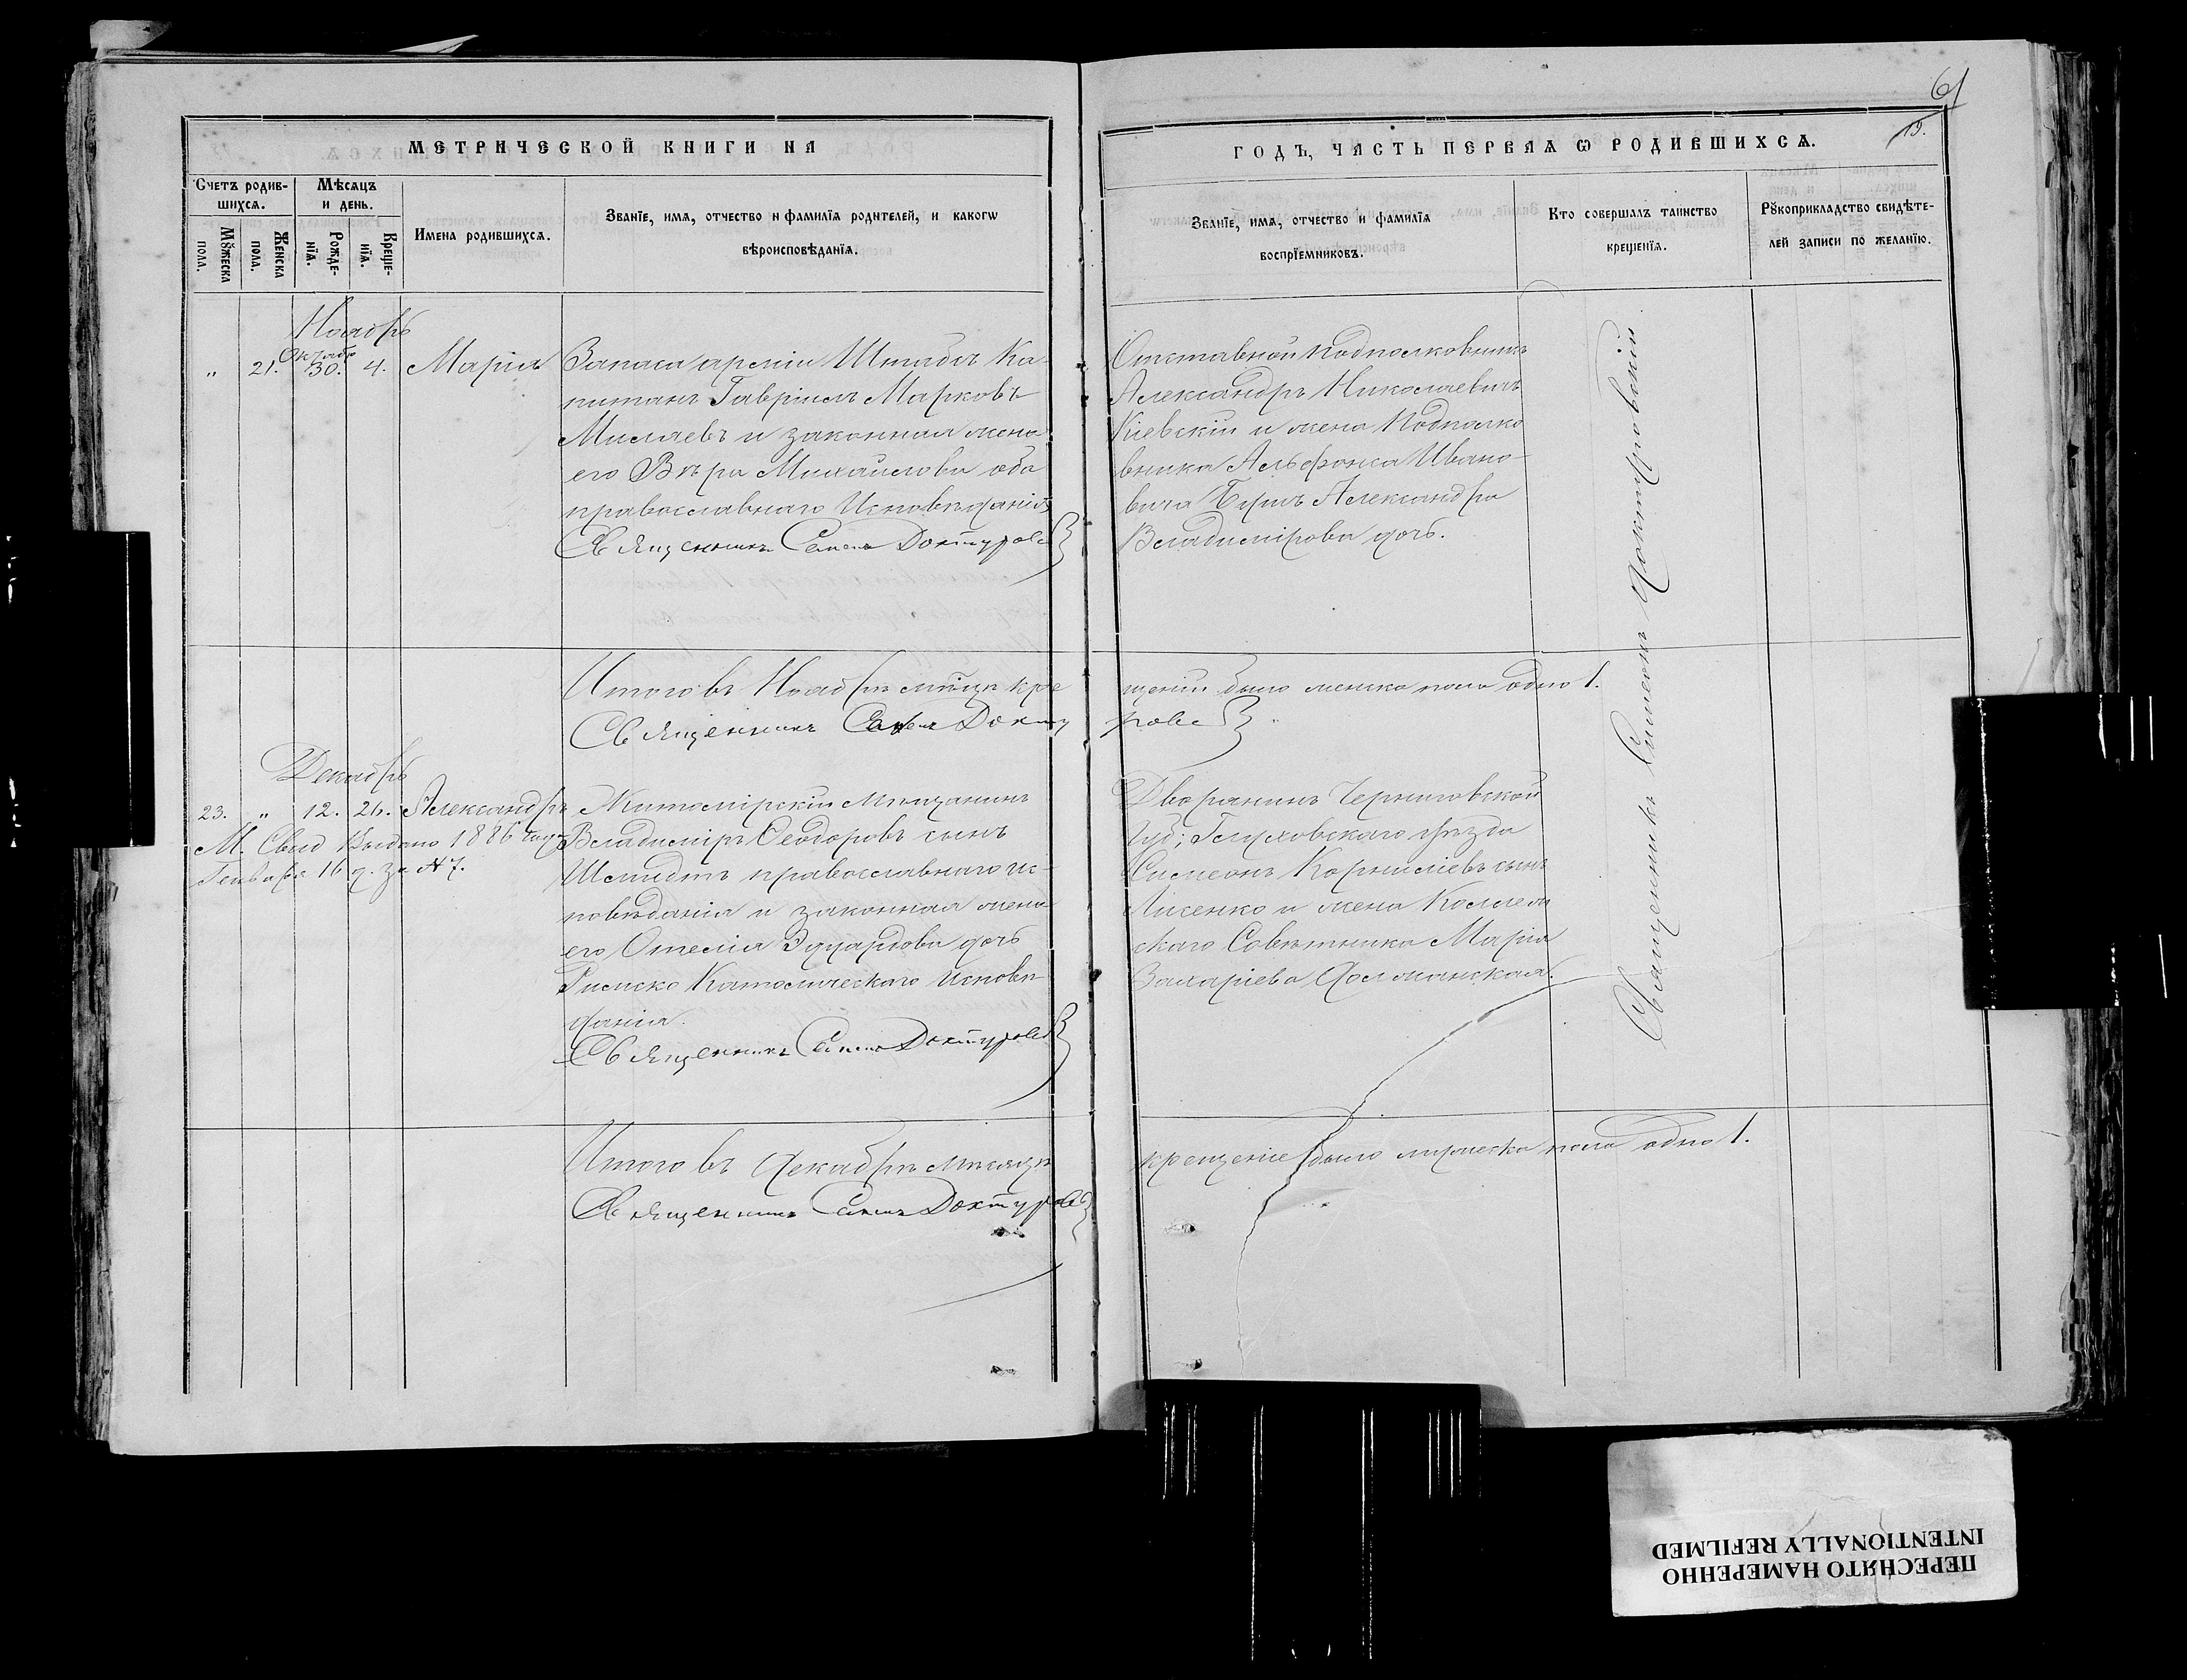 61
19.
МЕТРИЧЕСКОЙ КНИГИ НА
ГОДЪ, ЧАСТЬ ПЕРВАѦ Ѡ РОДИВШИХСѦ.
Счетъ родив-
шихсѧ.
Мѣсѧцъ
и день.
Мꙋжеска
пола.
Женска
пола.
Рожде-
нїѧ.
Креще-
нїѧ.
Имена родившихсѧ.
Званїе, имѧ, отчество и фамилїѧ родителей, и какогѡ
вѣроисповѣданїѧ.
Званїе, имѧ, отчество и фамилїѧ
воспрїемниковъ.
Кто совершалъ таинство
крещенїѧ.
Рꙋкоприкладство свидѣте-
лей записи по желанїю.
Ноябрь
Октября
„ 21. 30. 4. Марія
Запаса арміи Штабсъ Ка-
питанъ Гавріилъ Марковъ
Миляевъ и законная жена
его Вѣра Михаилова оба
православнаго Исповѣданія
Священникъ Симеонъ Доктуровс
Отставной подполковникъ
Александръ Николаевичъ
Кіевскій и жена Подполко
вника Альфонса Ивано-
вича Александра
Владимірова дочь.
Итого въ Ноябрѣ мѣсяцѣ кре
щеній было женска пола одно 1.
Священникъ Симеонъ Докту
ровс
Декабрь
23. „ 12. 26. Александръ
М. Свид выдано 1886 года
Генваря 16 д. за № 7.
Житомірскій Мѣщанинъ
Владиміръ Ѳеодоровъ сынъ
Шмидтъ православнаго ис-
повѣданія и законная жена
его Отелія Эдуардова дочь
Римско Католическаго Исповѣ-
данія.
Священникъ Симеонъ Доктуровс
Дворянинъ Черниговской
Губ; Глуховскаго уѣзда
Симеонъ Корниліевъ сынъ
Лисенко и жена Коллеж
скаго Совѣтника Марія
Захаріева Должанская.
Священникъ Симеонъ Доктуровскій
Итого въ Декабрѣ мѣсяцѣ
крещеніе было мужеска пола одно 1.
Священникъ Симеонъ Доктуровс
ПЕРЕСНЯТО НАМЕРЕННО
INTENTIONALLY REFILMED